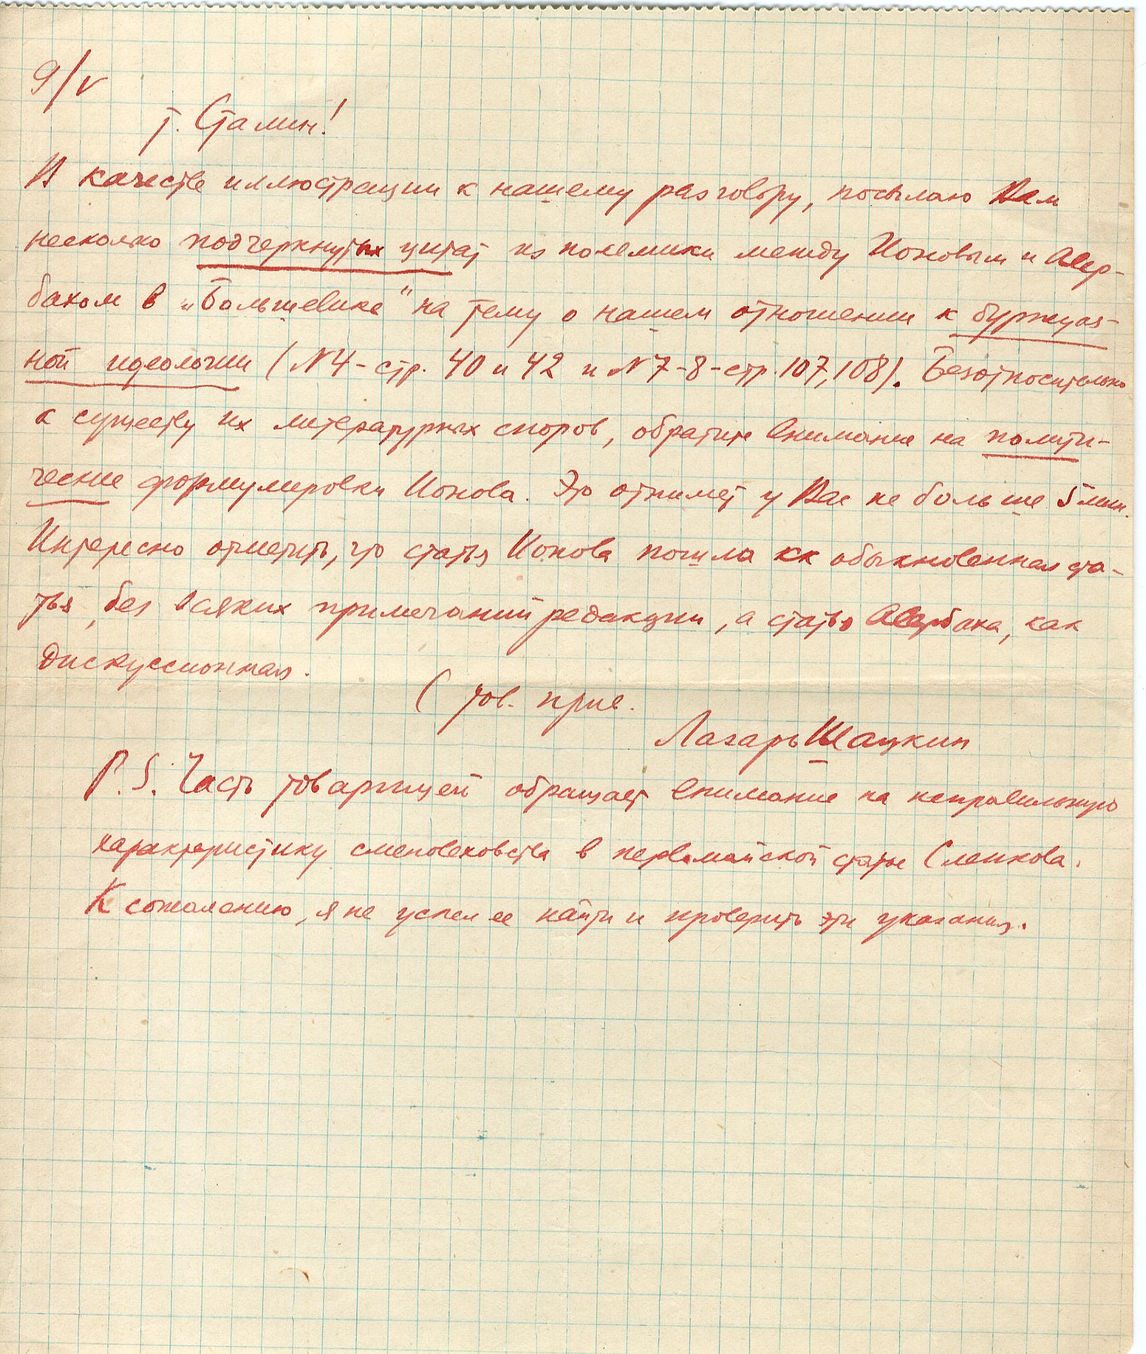 9/V
т. Сталин!
В качестве иллюстрации к нашему разговору, посылаю Вам
несколько подчеркнутых цитат из полемики между Ионовым и Авер-
бахом в „Большевике“ на тему о нашем отношении к буржуаз-
ной идеологии (№4-стр. 40 и 42 и №7-8-стр. 107, 108). Безотносительно
к существу их литературных споров, обратите внимание на полити-
ческие формулировки Ионова. Это отнимет у Вас не больше 5 мин.
Интересно отметить, что статья Ионова пошла как обыкновенная ста-
тья, без всяких примечаний редакции, а статья Авербаха, как
дискуссионная.
С тов. прив.
Лазарь Шацкин
P.S. Часть товарищей обращает внимание на неправильную
характеристику сменовеховства в первомайской статье Слепкова.
К сожалению, я не успел ее найти и проверить эти указания.